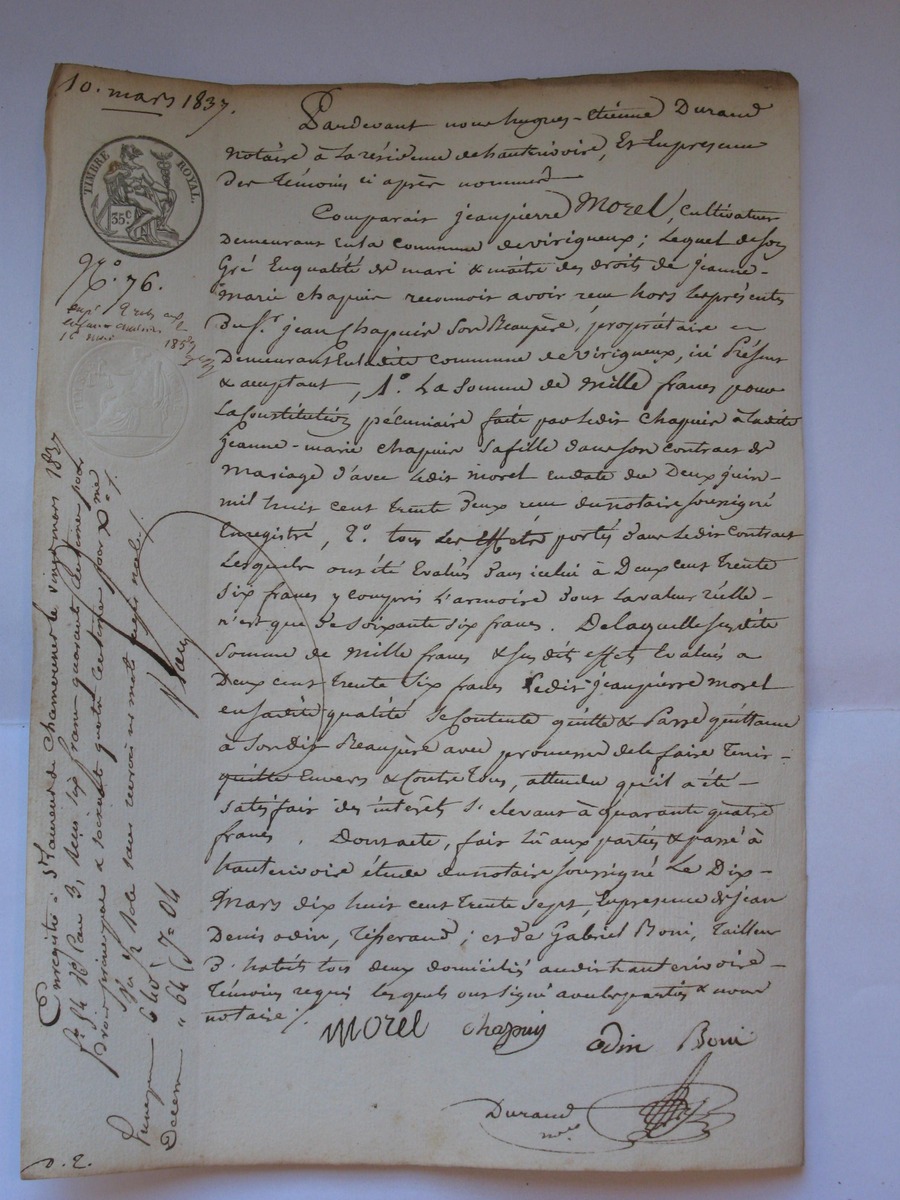 10. mars 1837.
TIMBRE ROYAL.
35 c
N.o 76.
Pardevant nous hugues-Etienne Durand
notaire à la résidence de hauterivoire, Et En presence
Des Témoins ci après nommés
Comparait jeanpierre Morel, cultivateur
Demeurant En la commune de virigneux; Lequel de son
Gré En qualité de mari & maitre des droits de jeanne-
marie chapuis reconnoit avoir recu hors les présentes
Du Sr. jean Chapuis Son Beaupère, propriétaire
Demeurant En ladite commune de virigneux, ici Présent
& acceptant, 1.o La Somme de Mille francs pour
La Constitution pécuniaire faite par ledit chapuis à ladite
jeanne-marie chapuis sa fille dans son contrat de
Mariage d'avec ledit morel en date du Deux juin
mil huit cent trente deux recu du notaire soussigné
Enregistré, 2.o tous les Effets portés dans ledit Contrat
Lesquels ont été Evalués dans icelui à Deux cent trente
six francs y compris l'armoire dont la valeur réelle
n'est que de soixante six francs. De laquelle susdite
somme de mille francs & susdits effets Evalués a
Deux cent trente six francs Ledit jeanpierre morel
en sadite qualité se Contente quitte & Passe quittance
à Sondit Beaupère avec promesse de le faire Tenir
quitte Envers & Contre tous, attendu qu'il a été
satisfait des intérêts s'elevant à quarante quatre
francs. Dont acte, fait lû aux parties & passé à
hauterivoire étude du notaire soussigné Le Dix-
Mars dix huit cent trente sept, En presence de jean
Denis odin, Tisserand; et de Gabriel Boni, Tailleur
d'habits tous deux domiciliés audit hauterivoire
Témoins requis lesquels ont signé avec les parties & nous
notaire.
Morel chapuis
odin Boni
Durand
nre
Enregistré à St. Laurent de Chamousset le vingt mars 1837
fo. 54 Ro Case 3, recu six francs quarante centimes pour
Droit principal & soixante quatre centimes pour xme
Sur 1/2 rôle sans renvoi ni mot rayé nul.
640
" 64
7=04